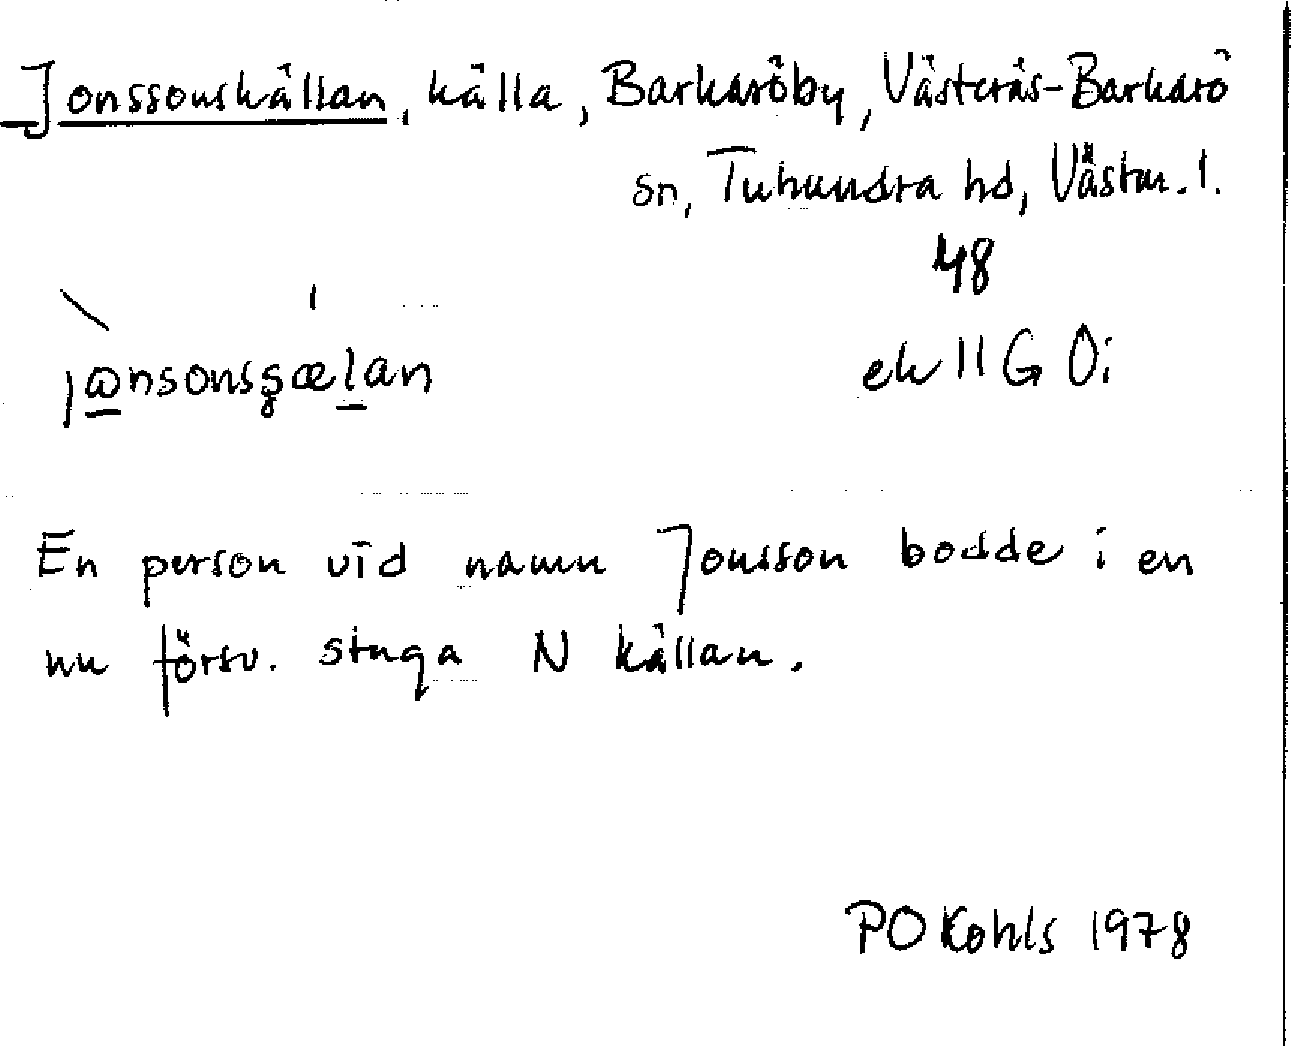 Jonssonskällan, källa, Barkaröby, Västerås-Barkarö
sn, Tuhundra hd, Västm. l.
48
jɷnsonsşælan
ek 11 G 0i
En person vid namn Jonsson bodde i en
nu försv. stuga N källan.
PO Kohls 1978